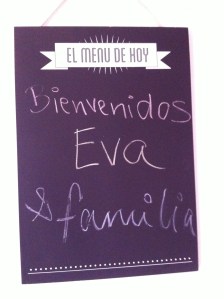 EL MENU DE HOY
Bienvenidos
Eva
& familia